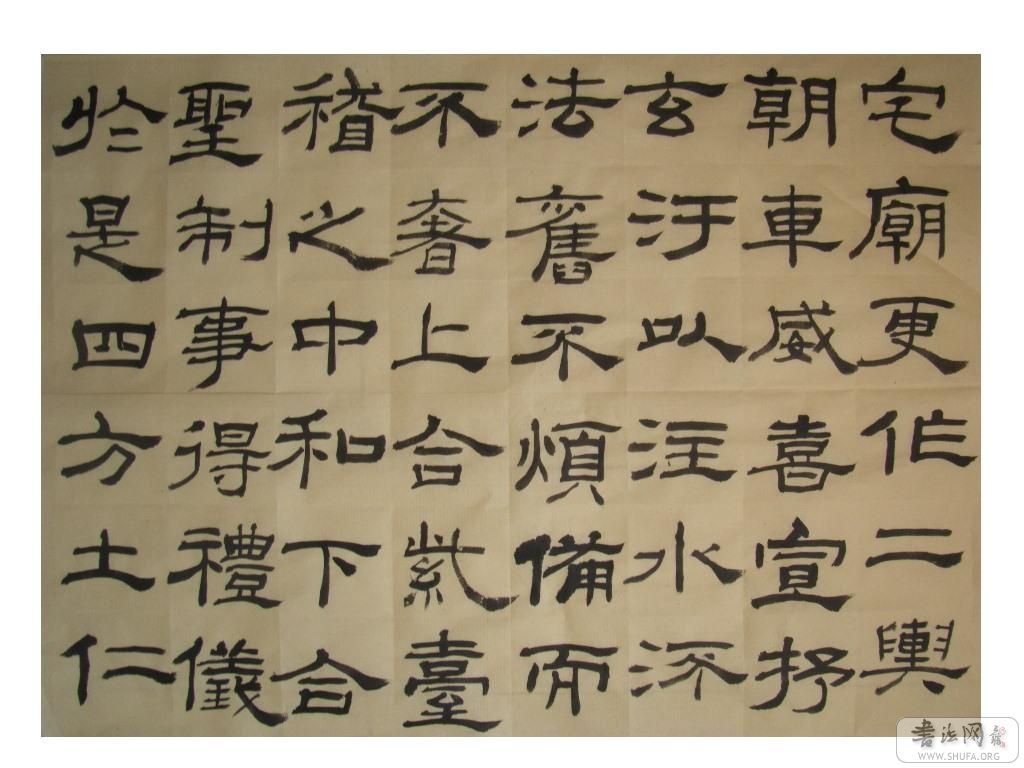 宅廟更作二輿
朝車威喜宣抒
玄汙以注水流
法舊不煩備而
不奢上合紫臺
稽之中和下合
聖制事得禮儀
於是四方土仁
書法网
WWW.SHUFA.ORG